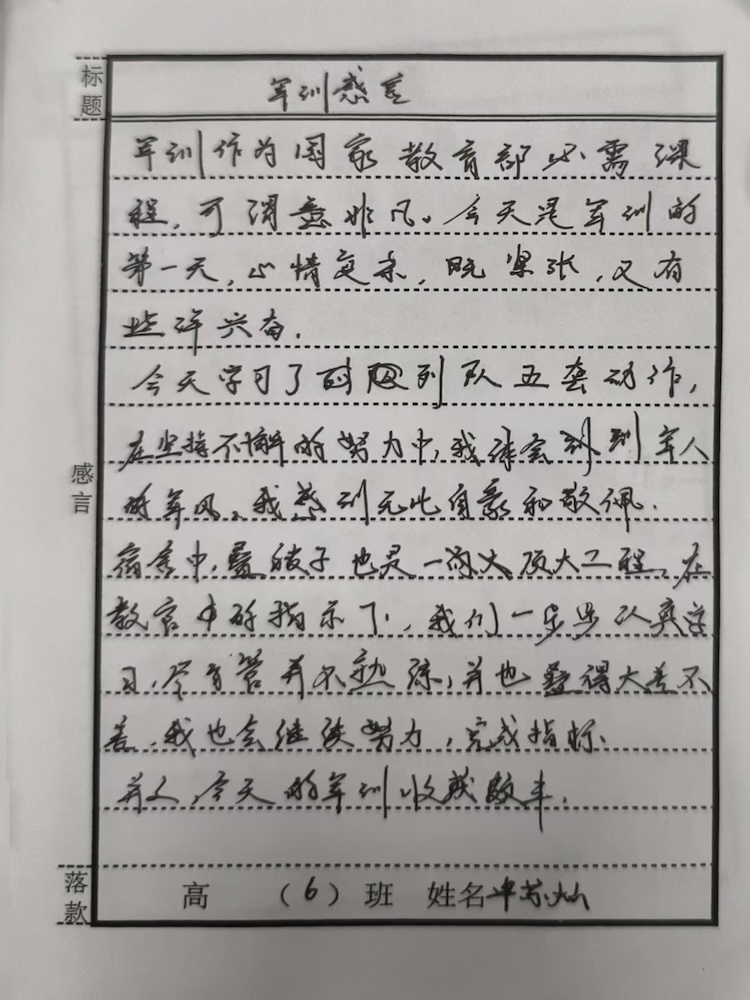 标题
军训感言
军训作为国家教育部必需课
程，可谓意非凡。今天是军训的
第一天，心情复杂，既紧张，又有
些许兴奋.
今天学习了列队五套动作，
在坚持不懈的努力中，我体会到到军人
的军风。我感到无比自豪和敬佩.
宿舍中，叠被子也是一门大项大工程，在
教官的指示下，我们一步步认真学
习，尽管并不熟练，并也叠得大差不
差，我也会继续努力，完成指标.
今天的军训收获颇丰.
感言
落款
高 （6）班 姓名